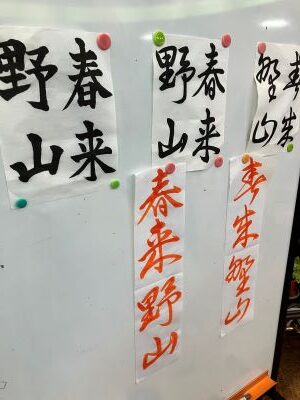 春来
野山
春来
野山
春来
野山
春来野山
春来野山